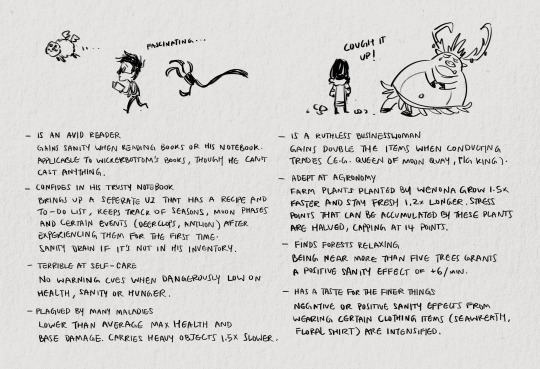 FASCINATING...
- IS AN AVID READER
GAINS SANITY WHEN READING BOOKS OR HIS NOTEBOOK.
APPLICABLE TO WICKERBOTTOM'S BOOKS, THOUGH HE CAN'T
CAST ANYTHING.
- CONFIDES IN HIS TRUSTY NOTEBOOK
BRINGS UP A SEPERATE UI THAT HAS A RECIPE AND
TO-DO LIST, KEEPS TRACK OF SEASONS, MOON PHASES
AND CERTAIN EVENTS (DEERCLOPS, ANTLION) AFTER
EXPERIENCING THEM FOR THE FIRST TIME.
SANITY DRAIN IF IT'S NOT IN HIS INVENTORY.
- TERRIBLE AT SELF-CARE
NO WARNING CUES WHEN DANGEROUSLY LOW ON
HEALTH, SANITY OR HUNGER.
- PLAGUED BY MANY MALADIES
LOWER THAN AVERAGE MAX HEALTH AND
BASE DAMAGE. CARRIES HEAVY OBJECTS 1.5X SLOWER.
COUGH IT
UP!
- IS A RUTHLESS BUSINESSWOMAN
GAINS DOUBLE THE ITEMS WHEN CONDUCTING
TRADES (E.G. QUEEN OF MOON QUAY, PIG KING).
- ADEPT AT AGRONOMY
FARM PLANTS PLANTED BY WENONA GROW 1.5X
FASTER AND STAY FRESH 1.2X LONGER. STRESS
POINTS THAT CAN BE ACCUMULATED BY THESE PLANTS
ARE HALVED, CAPPING AT 14 POINTS.
- FINDS FORESTS RELAXING
BEING NEAR MORE THAN FIVE TREES GRANTS
A POSITIVE SANITY EFFECT OF +6/MIN.
- HAS A TASTE FOR THE FINER THINGS
NEGATIVE OR POSITIVE SANITY EFFECTS FROM
WEARING CERTAIN CLOTHING ITEMS (SEAWREATH,
FLORAL SHIRT) ARE INTENSIFIED.